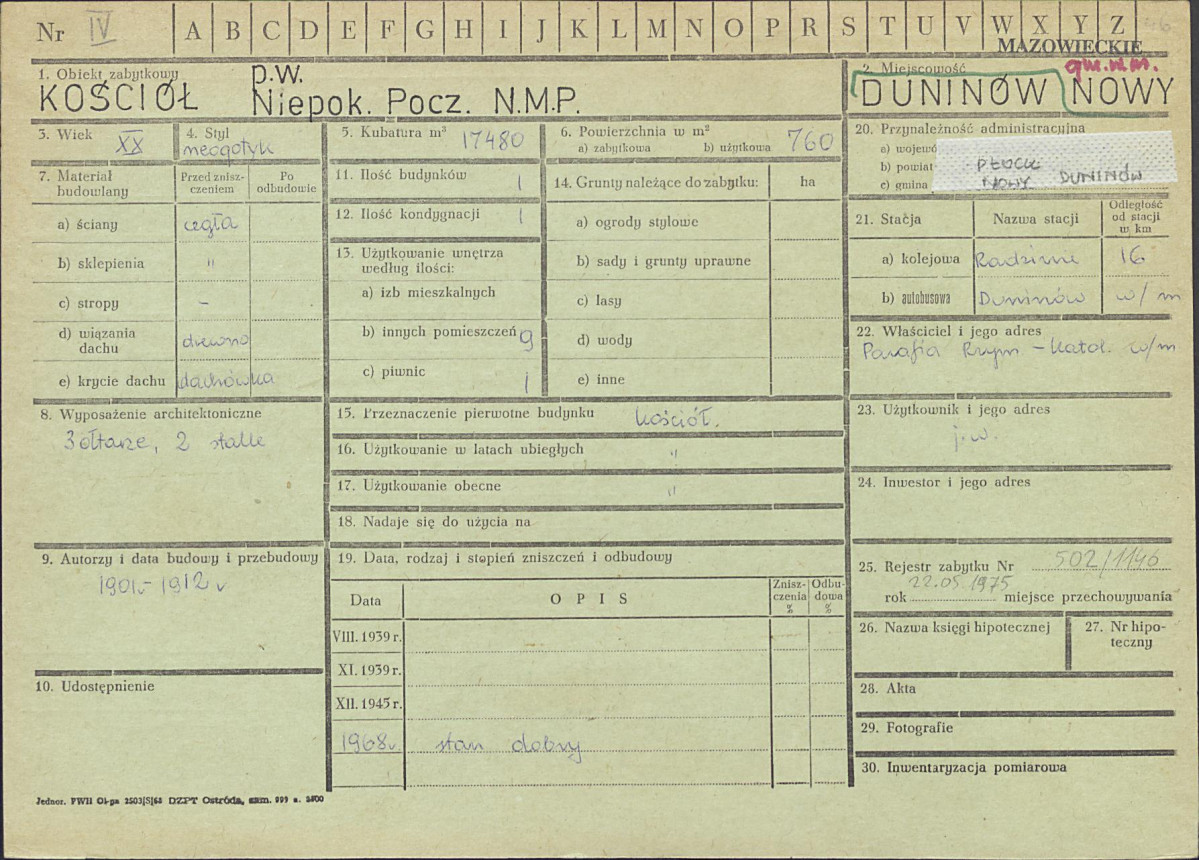 Nr IV A B C D E F G H I J K L M N O P R S T U V W X Y Z 46
MAZOWIECKIE
1. Obiekt zabytkowy
KOŚCIÓŁ
p.w.
Niepok. Pocz. N.M.P.
2. Miejscowość
gm. w m.
DUNINÓW NOWY
3. Wiek
XX
4. Styl
neogotyk
5. Kubatura m³ 17480
6. Powierzchnia w m²
a) zabytkowa b) użytkowa 760
7. Materiał budowlany
Przed znisz-
czeniem
Po
odbudowie
a) ściany cegła
b) sklepienia "
c) stropy -
d) wiązania
dachu drewno
e) krycie dachu dachówka
8. Wyposażenie architektoniczne
3 ołtarze, 2 stalle
9. Autorzy i data budowy i przebudowy
1901.-1912 r
10. Udostępnienie
11. Ilość budynków 1
12. Ilość kondygnacji 1
13. Użytkowanie wnętrza
według ilości:
a) izb mieszkalnych
b) innych pomieszczeń 9
c) piwnic 1
14. Grunty należące do zabytku: ha
a) ogrody stylowe
b) sady i grunty uprawne
c) lasy
d) wody
e) inne
15. Przeznaczenie pierwotne budynku kościół.
16. Użytkowanie w latach ubiegłych "
17. Użytkowanie obecne "
18. Nadaje się do użycia na
19. Data, rodzaj i stopień zniszczeń i odbudowy
Data OPIS
Znisz-
czenia
%
Odbu-
dowa
%
VIII. 1939 r.
XI. 1939 r.
XII. 1945 r.
1968r stan dobry
20. Przynależność administracyjna
a) wojewó
b) powiat PŁOCK
c) gmina NOWY DUNINÓW
21. Stacja Nazwa stacji
Odległość
od stacji
w km
a) kolejowa Radziwie 16
b) autobusowa Duninów w/m
22. Właściciel i jego adres
Parafia Rzym.-katol. w/m
23. Użytkownik i jego adres
j.w.
24. Inwestor i jego adres
25. Rejestr zabytku Nr 502/1146
rok 22.05 1975 miejsce przechowywania
26. Nazwa księgi hipotecznej
27. Nr hipo-
teczny
28. Akta
29. Fotografie
30. Inwentaryzacja pomiarowa